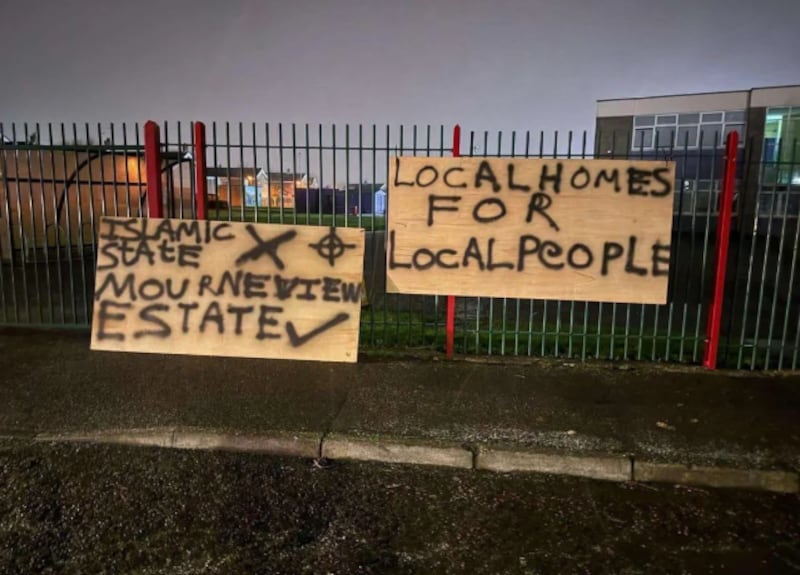 ISLAMIC
STATE
MOURNEVIEW
ESTATE
LOCAL HOMES
FOR
LOCAL PEOPLE